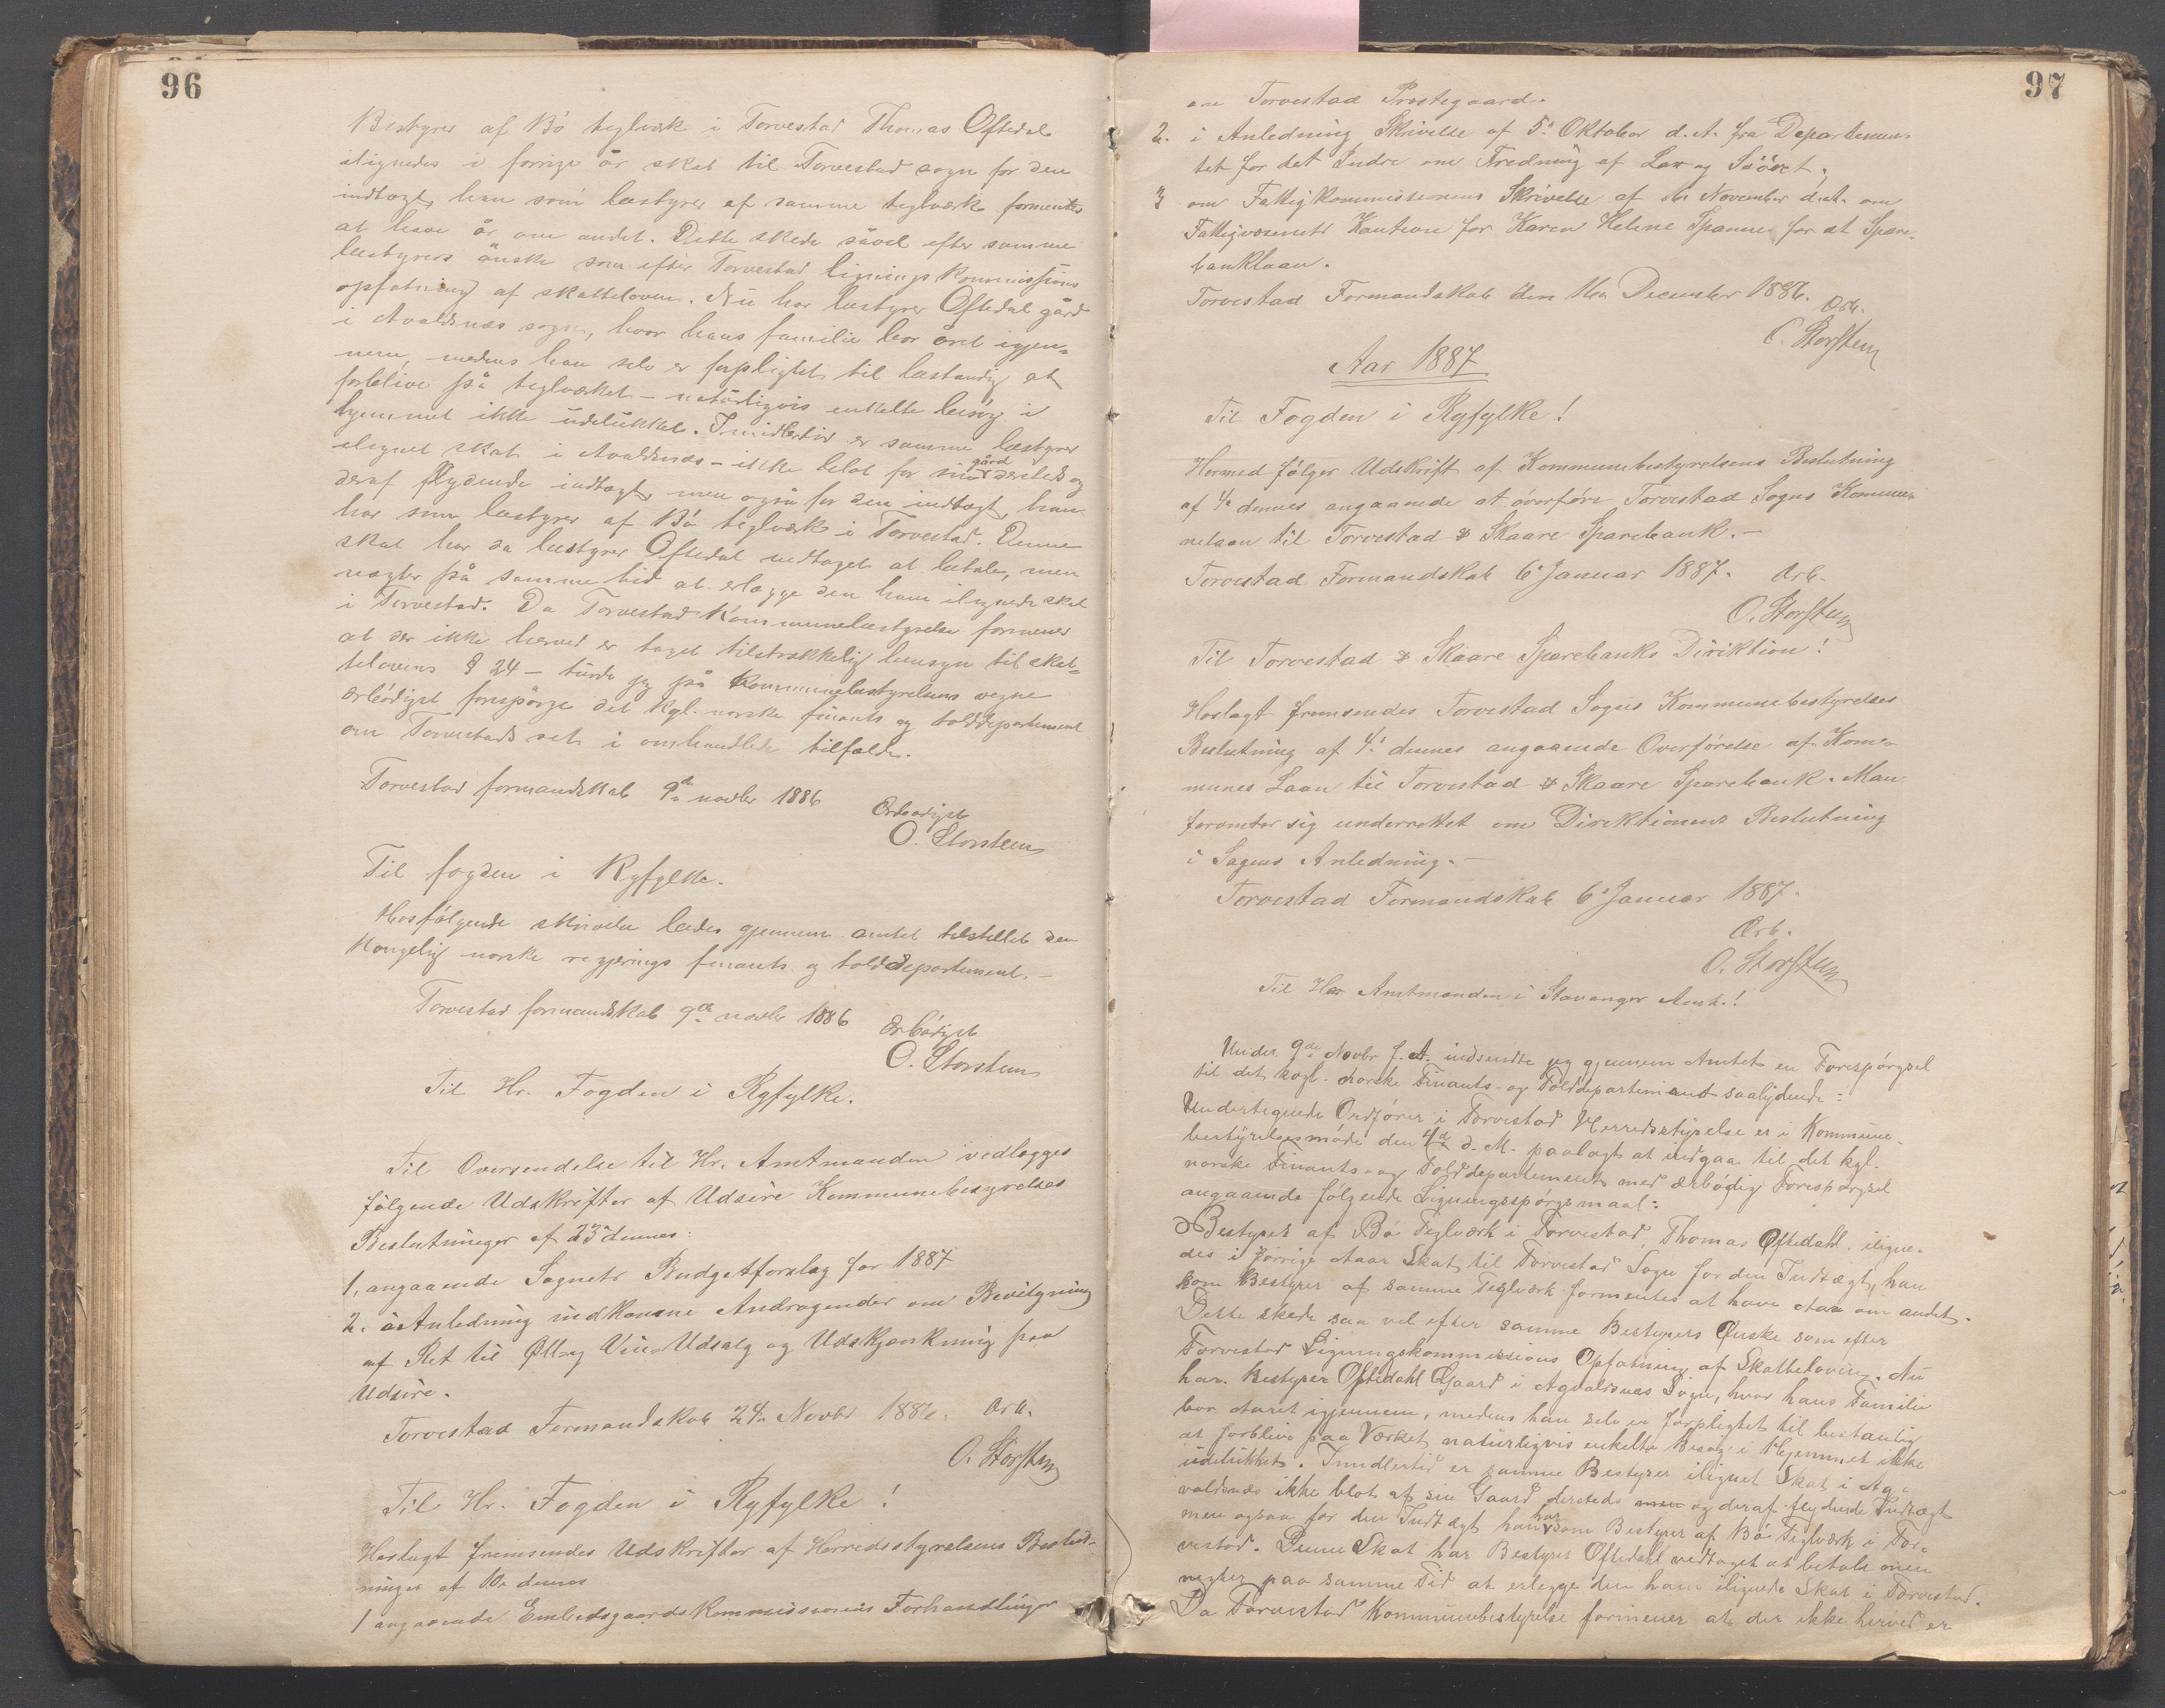 96
Bestyrer af Bö teglværk i Torvestad Thomas Oftedal
ilignedes i forrige år skat til Torvestad sogn for den
indtægt, han som bestyrer af samme teglværk formentes
at have år om andet. Dette skede såvel efter samme
bestyrers önske som efter Torvestad ligningskommissions
opfatning af skatteloven. Nu har bestyrer Oftedal gård
i Avaldsnæs sogn, hvor hans familie bor året igjen-
nem, medens han selv er forpligtet til bestandig at
forblive på teglværket - naturligvis enkelte besög i
hjemmet ikke udelukket. Imidlertid er samme bestyrer
ilignet skat i Avaldsnæs - ikke blot for sin gård dersteds og
deraf flydende indtægt, men også for den indtægt, han
har som bestyrer af Bö teglværk i Torvestad. Denne
skat har da bestyrer Oftedal vedtaget at betale, men
nægter på samme tid at erlægge den ham ilignede skat
i Torvestad. Da Torvestad kommunebestyrelse formener
at der ikke herved er taget tilstrækkelig hensyn til skat-
telovens § 24 - turde jeg på kommunebestyrelsens vegne
ærbödigst forespörge det kgl. norske finants og tolddepartement
om Torvestads ret i omhandlede tilfælde.
Torvestad formandskab 9de novbr 1886
Ærbödigst
O. Storsteen
Til fogden i Ryfylke.
Hosfölgende skrivelse bedes gjennem amtet tilstillet den
kongelig norske regjerings finants og tolddepartement. -
Torvestad formandskab 9de novbr 1886
Ærbödigst
O. Storsteen
Til Hr. Fogden i Ryfylke.
Til Oversendelse til Hr. Amtmanden vedlægges
fölgende Udskrifter af Udsire Kommunebestyrelses
Beslutninger af 23de dennes:
1, angaaende Sognets Budgetforslag for 1887
2. i Anledning indkomne Andragender om Bevilgning
af Ret til Öl og Vin Udsalg og Udskjænkning paa
Udsire.
Torvestad Formandskab 24. Novbr 1886. Ærb.
O. Storsteen
Til Hr. Fogden i Ryfylke!
Hoslagt fremsendes Udskrifter af Herredsstyrelsens Beslut-
ninger af 10. dennes
1 angaaende Embedsgaardskommissionens Forhandlinger
97
om Torvestad Præstegaard.
2. i Anledning Skrivelse af 5. Oktober d. A. fra Departemen-
tet for det Indre om Fredning af Lax og Söört.
3 om Fattigkommissionens Skrivelse af 16. November d. A. om
Fattigvæsenets Kaution for Karen Helene Spanne for et Spare-
banklaan.
Torvestad Formandskab den 11. December 1886.
Ærb.
O. Storsteen
Aar 1887
Til Fogden i Ryfylke!
Hermed fölger Udskrift af Kommunebestyrelsens Beslutning
af 4. dennes angaaende at överföre Torvestad Sogns Kommu-
nelaan til Torvestad & Skaare Sparebank. -
Torvestad Formandskab 6. Januar 1887. Ærb.
O. Storsteen
Til Torvestad & Skaare Sparebanks Direktion!
Hoslagt fremsendes Torvestad Sogns Kommunebestyrelses
Beslutning af 4. dennes angaaende Overförelse af Kom-
munes Laan til Torvestad & Skaare Sparebank. Man
forventer sig underrettet om Direktionens Beslutning
i Sagens Anledning. -
Torvestad Formandskab 6. Januar 1887.
Ærb.
O. Storsteen
Til Hr. Amtmanden i Stavanger Amt.!
Under 9de Novbr f. A. indsendte jeg gjennem Amtet en Forespörgsel
til det kogl. norske Finants- og Tolddepartement saalydende:
Undertegnede Ordförer i Torvestad Herredsstyrelse er i Kommune-
bestyrelsesmöde den 4de d. M. paalagt at indgaa til det kgl.
norske Finants- og Tolddepartement med ærbödig Forespörgsel
angaaende fölgende Ligningsspörgsmaal:
Bestyrer af Bö Teglværk i Torvestad, Thomas Oftedahl, iligne-
des i forrige Aaar Skat til Torvestad Sogn for den Indtægt, han
som Bestyrer af samme Teglværk formentes at have Aar om andet.
Dette skede saa vel efter samme Bestyrers Ønske som efter
Torvestad Ligningskommissions Opfatning af Skatteloven. Nu
har Bestyrer Oftedahl Gaard i Agvaldsnæs Sogn, hvor hans Familie
bor Aaret igjennem, medens han selv er forpligtet til bestandig
at forblive paa Værket, naturligvis enkelte Besög i Hjemmet ikke
udelukket. Imidlertid er samme Bestyrer ilignet Skat i Ag-
valdsnæs ikke blot af sin Gaard dersteds og deraf flydende Indtægt
men ogsaa for den Indtægt han har som Bestyrer af Bö Teglværk i Tor-
vestad. Denne Skat har Bestyrer Oftedahl vedtaget at betale men
negter paa samme Tid at erlegge den ham ilignede Skat i Torvestad.
Da Torvestad Kommunebestyrelse formener at der ikke herved er